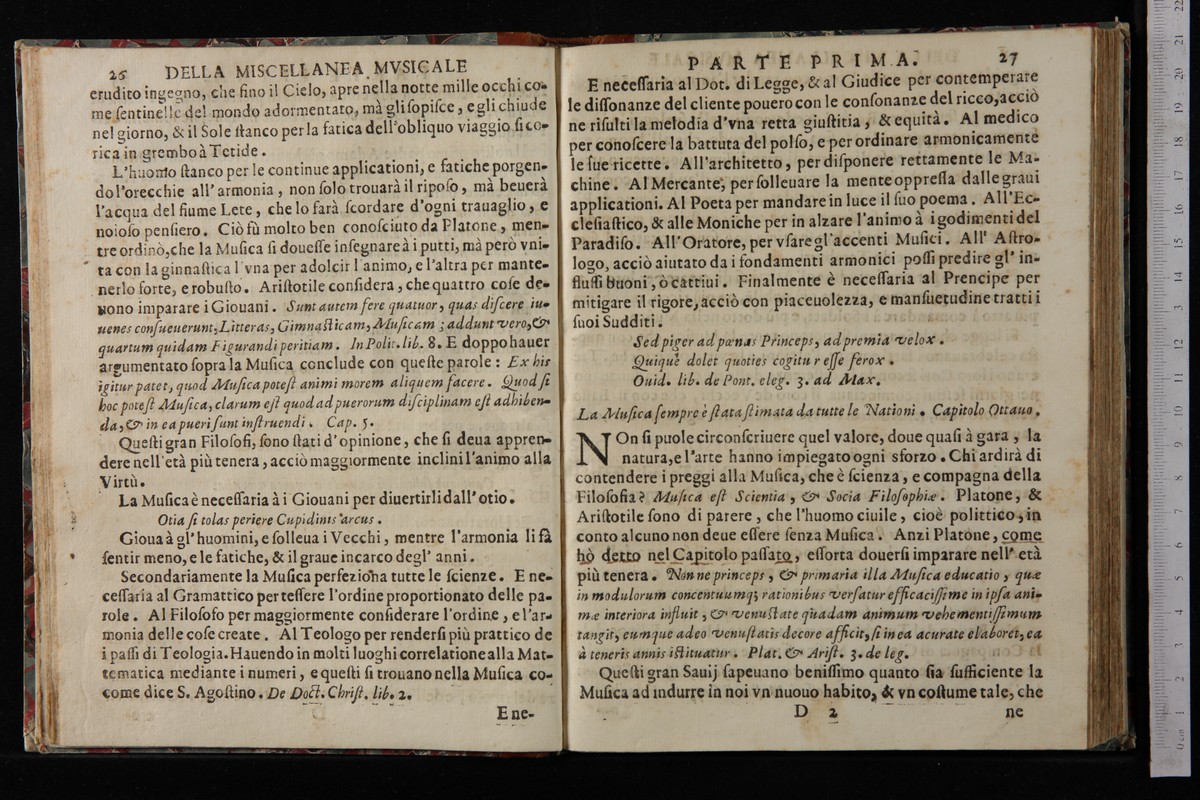 26 DELLA MISCELLANEA MVSICALE
erudito ingegno, che fino il Cielo, apre nella notte mille occhi co-
me ſentinelle del mondo adormentato, mà gli ſopiſce, e gli chiude
nel giorno, & il Sole ſtanco per la fatica dell'obliquo viaggio ſi co-
rica in grembo à Tetide.
L'huomo ſtanco per le continue applicationi, e fatiche porgen-
do l'orecchie all'armonia, non ſolo trouarà il ripoſo, mà beuerà
l'acqua del fiume Lete, che lo farà ſcordare d'ogni trauaglio, e
noioſo penſiero. Ciò fù molto ben conoſciuto da Platone, men-
tre ordinò, che la Muſica ſi doueſſe inſegnare à i putti, mà però vni-
ta con la ginnaſtica l'vna per adolcir l'animo, e l'altra per mante-
nerlo forte, e robuſto. Ariſtotile conſidera, che quattro coſe de-
uono imparare i Giouani. Sunt autem fere quatuor, quas diſcere iu-
uenes conſueuerunt, Litteras, Gimnaſticam, Muſicam; addunt vero, &
quartum quidam Figurandi peritiam. In Polit. lib. 8. E doppo hauer
argumentato ſopra la Muſica conclude con queſte parole: Ex his
igitur patet, quod Muſica poteſt animi morem aliquem facere. Quod ſi
hoc poteſt Muſica, clarum eſt quod ad puerorum diſciplinam eſt adhiben-
da, & in ea pueri ſunt inſtruendi. Cap. 5.
Queſti gran Filoſofi, ſono ſtati d'opinione, che ſi deua appren-
dere nell'età più tenera, acciò maggiormente inclini l'animo alla
Virtù.
La Muſica è neceſſaria à i Giouani per diuertirli dall'otio.
Otia ſi tolas periere Cupidinis arcus.
Gioua à gl'huomini, e ſolleua i Vecchi, mentre l'armonia li fà
ſentir meno, e le fatiche, & il graue incarco degl'anni.
Secondariamente la Muſica perfeziona tutte le ſcienze. E ne-
ceſſaria al Gramattico per teſſere l'ordine proportionato delle pa-
role. Al Filoſofo per maggiormente conſiderare l'ordine, e l'ar-
monia delle coſe create. Al Teologo per renderſi più prattico de
i paſſi di Teologia. Hauendo in molti luoghi correlatione alla Mat-
tematica mediante i numeri, e queſti ſi trouano nella Muſica co-
come dice S. Agoſtino. De Doct. Chriſt. lib. 2.
E ne-
PARTE PRIMA. 27
E neceſſaria al Dot. di Legge, & al Giudice per contemperare
le diſſonanze del cliente pouero con le conſonanze del ricco, acciò
ne riſulti la melodia d'vna retta giuſtitia, & equità. Al medico
per conoſcere la battuta del polſo, e per ordinare armonicamente
le ſue ricette. All'architetto, per diſponere rettamente le Ma-
chine. Al Mercante, per ſolleuare la mente oppreſſa dalle graui
applicationi. Al Poeta per mandare in luce il ſuo poema. All'Ec-
cleſiaſtico, & alle Moniche per in alzare l'animo à i godimenti del
Paradiſo. All'Oratore, per vſare gl'accenti Muſici. All' Aſtro-
logo, acciò aiutato da i fondamenti armonici poſſi predire gl' in-
fluſſi buoni, ò cattiui. Finalmente è neceſſaria al Prencipe per
mitigare il rigore, acciò con piaceuolezza, e manſuetudine tratti i
ſuoi Sudditi.
Sed piger ad pœnas Princeps, ad premia velox.
Quique dolet quoties cogitur eſſe ferox.
Ouid. lib. de Pont. eleg. 3. ad Max.
La Muſica ſempre è ſtata ſtimata da tutte le Nationi. Capitolo Ottauo.
NOn ſi puole circonſcriuere quel valore, doue quaſi à gara, la
natura, e l'arte hanno impiegato ogni sforzo. Chi ardirà di
contendere i preggi alla Muſica, che è ſcienza, e compagna della
Filoſofia? Muſica eſt Scientia, & Socia Filoſophiæ. Platone, &
Ariſtotile ſono di parere, che l'huomo ciuile, cioè polittico, in
conto alcuno non deue eſſere ſenza Muſica. Anzi Platone, come
hò detto nel Capitolo paſſato, eſſorta douerſi imparare nell'età
più tenera. Non ne princeps, & primaria illa Muſica educatio, quæ
in modulorum concentuumq; rationibus verſatur efficaciſſime in ipſa ani-
mæ interiora influit, & venuſtate quadam animum vehementiſſimum
tangit, eumque adeo venuſtatis decore afficit, ſi in ea acurate elaboret, ea
à teneris annis iſtituatur. Plat. & Ariſt. 3. de leg.
Queſti gran Sauij ſapeuano beniſſimo quanto ſia ſufficiente la
Muſica ad indurre in noi vn nuouo habito, & vn coſtume tale, che
D 2 ne